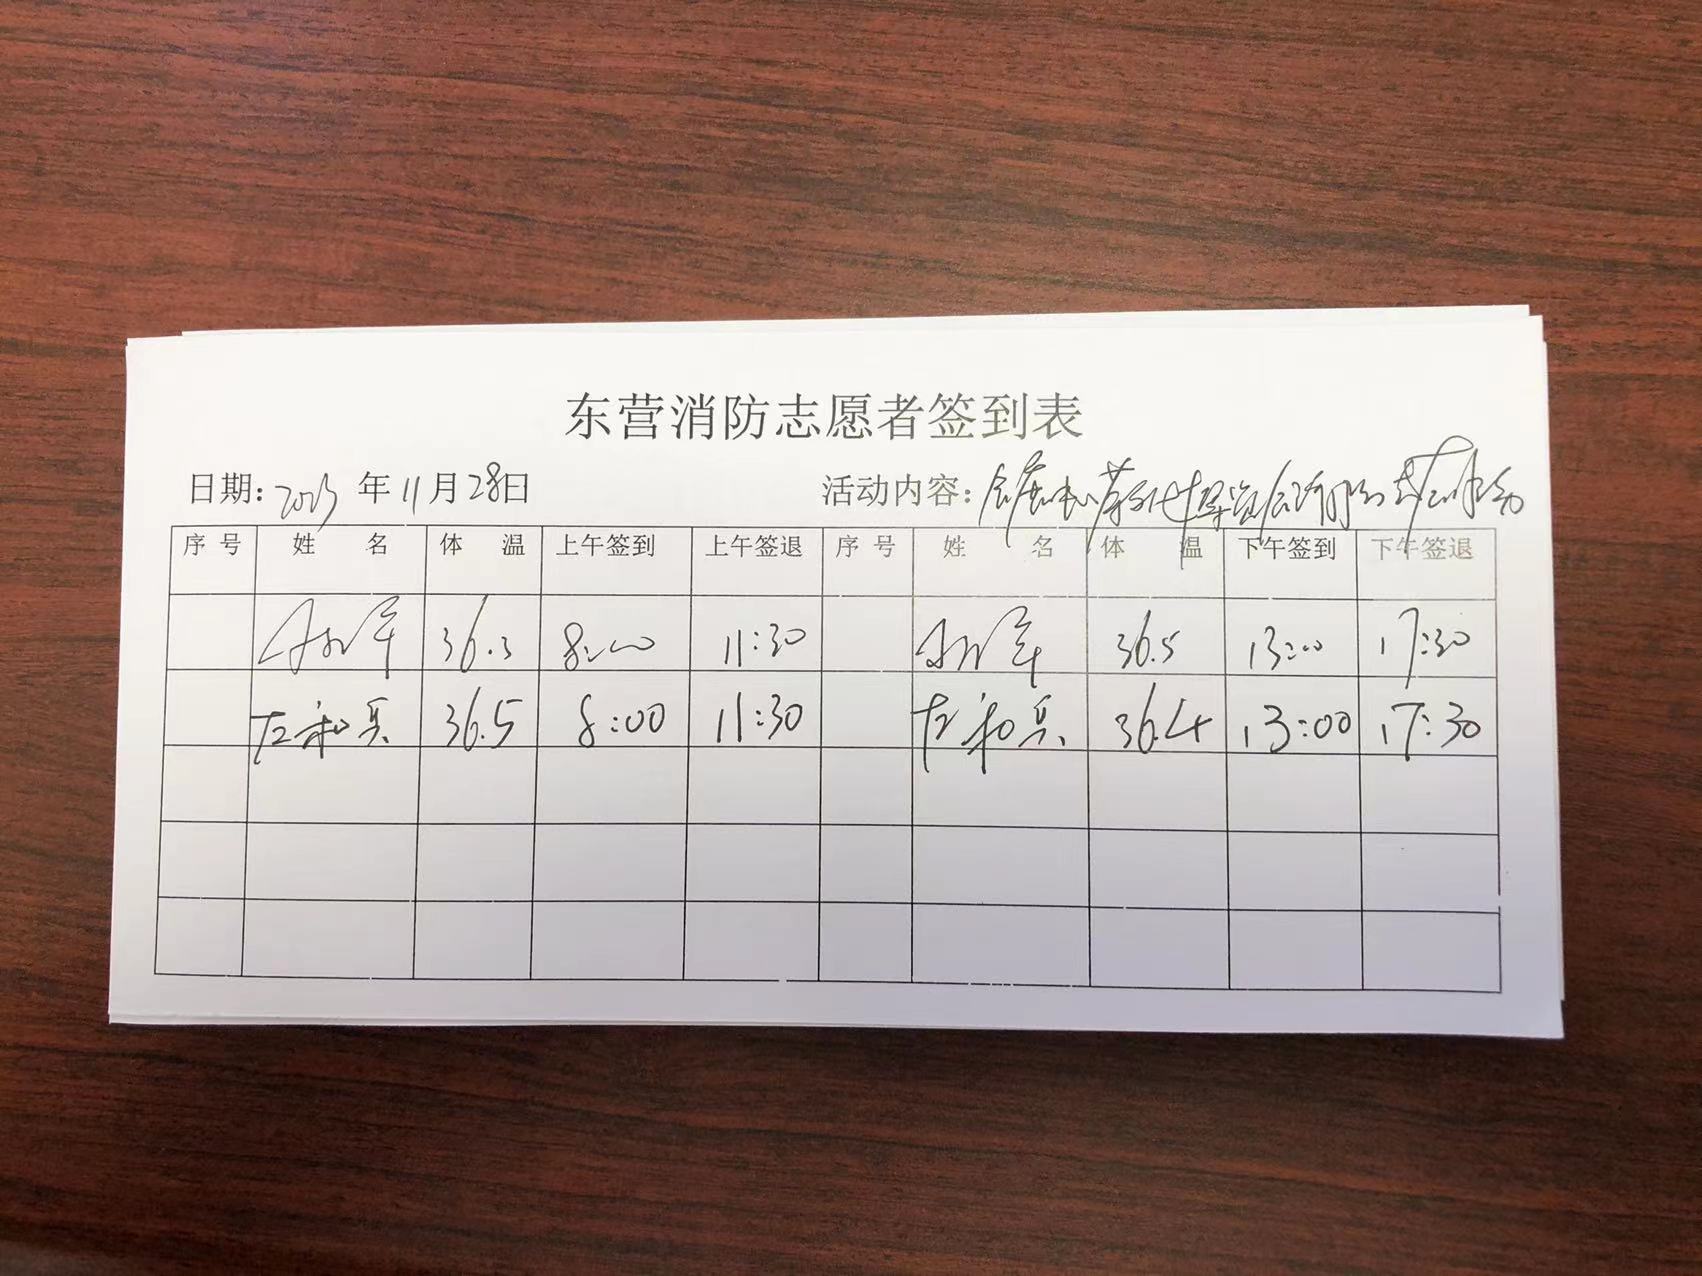 东营消防志愿者签到表
日期: 2023 年 11 月 28 日 活动内容:
序号 姓名 体温 上午签到 上午签退 序号 姓名 体温 下午签到 下午签退
36.3 8:00 11:30 36.5 13:00 17:30
左和兵 36.5 8:00 11:30 左和兵 36.4 13:00 17:30